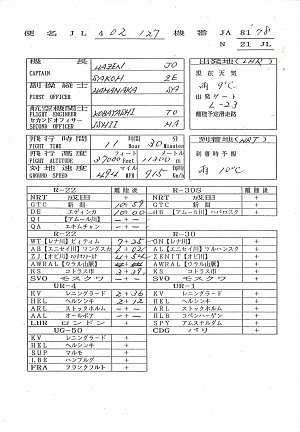 便名 JL 402 127 機番 JA 8178
N 21 JL
機長 HAZEN JO
CAPTAIN SAKOH SE
副操縦士 HAMANAKA SA
FIRST OFFICER
航空機関士 KOBAYASHI TO
FLIGHT ENGINEER
セカンドオフィサー ISHII MA
SECOND OFFICER
出発地 (LHR)
現在天気
雨 9℃
出発ゲート
L-23
離陸予定滑走路
飛行時間 11 時間 30 分
FLIGHT TIME Hour Minutes
飛行高度 フィート メートル
FLIGHT ALTITUDE 37000 Feet 11300 m
対地速度
GROUND SPEED 494 MPH 915 Km/h
到着地 (NRT)
到着時予報
雨 10℃
R-22 離陸後 R-20S 離陸後
NRT 成田 NRT 成田 +
GTC 新潟 10+59 GTC 新潟 +
DE エディンカ 10+00 HB 【アムール川】ハバロスク +
QI 【アムール川】 -+-
QA エキムチャン -+-
R-22 R-30
WT 【レナ川】ビィティム 7+35 ON 【レナ川】 +
AB 【エニセイ川】ワングスカ 6+02 AL 【エニセイ川】ツルハンスク +
ZJ 【オビ川】 4+54 ZENIT 【オビ川】 +
AWRAL 【ウラル山脈】 AWRAL 【ウラル山脈】 +
KS コトラス市 3+39 KS コトラス市 +
SVO モスクワ SVO モスクワ +
UR-4 UR-1
KV レニングラード 2+36 KV レニングラード +
HEL ヘルシンキ 2+12 HEL ヘルシンキ +
ARL ストックホルム -+- ARL ストックホルム +
AAL オールボア -+- HLB コペンハーゲン +
LHR ロンドン + SPY アムステルダム +
UG-50 CDG パリ +
KV レニングラード +
HEL ヘルシンキ +
SUP マルモ +
LBE ハンブルグ +
FRA フランクフルト +